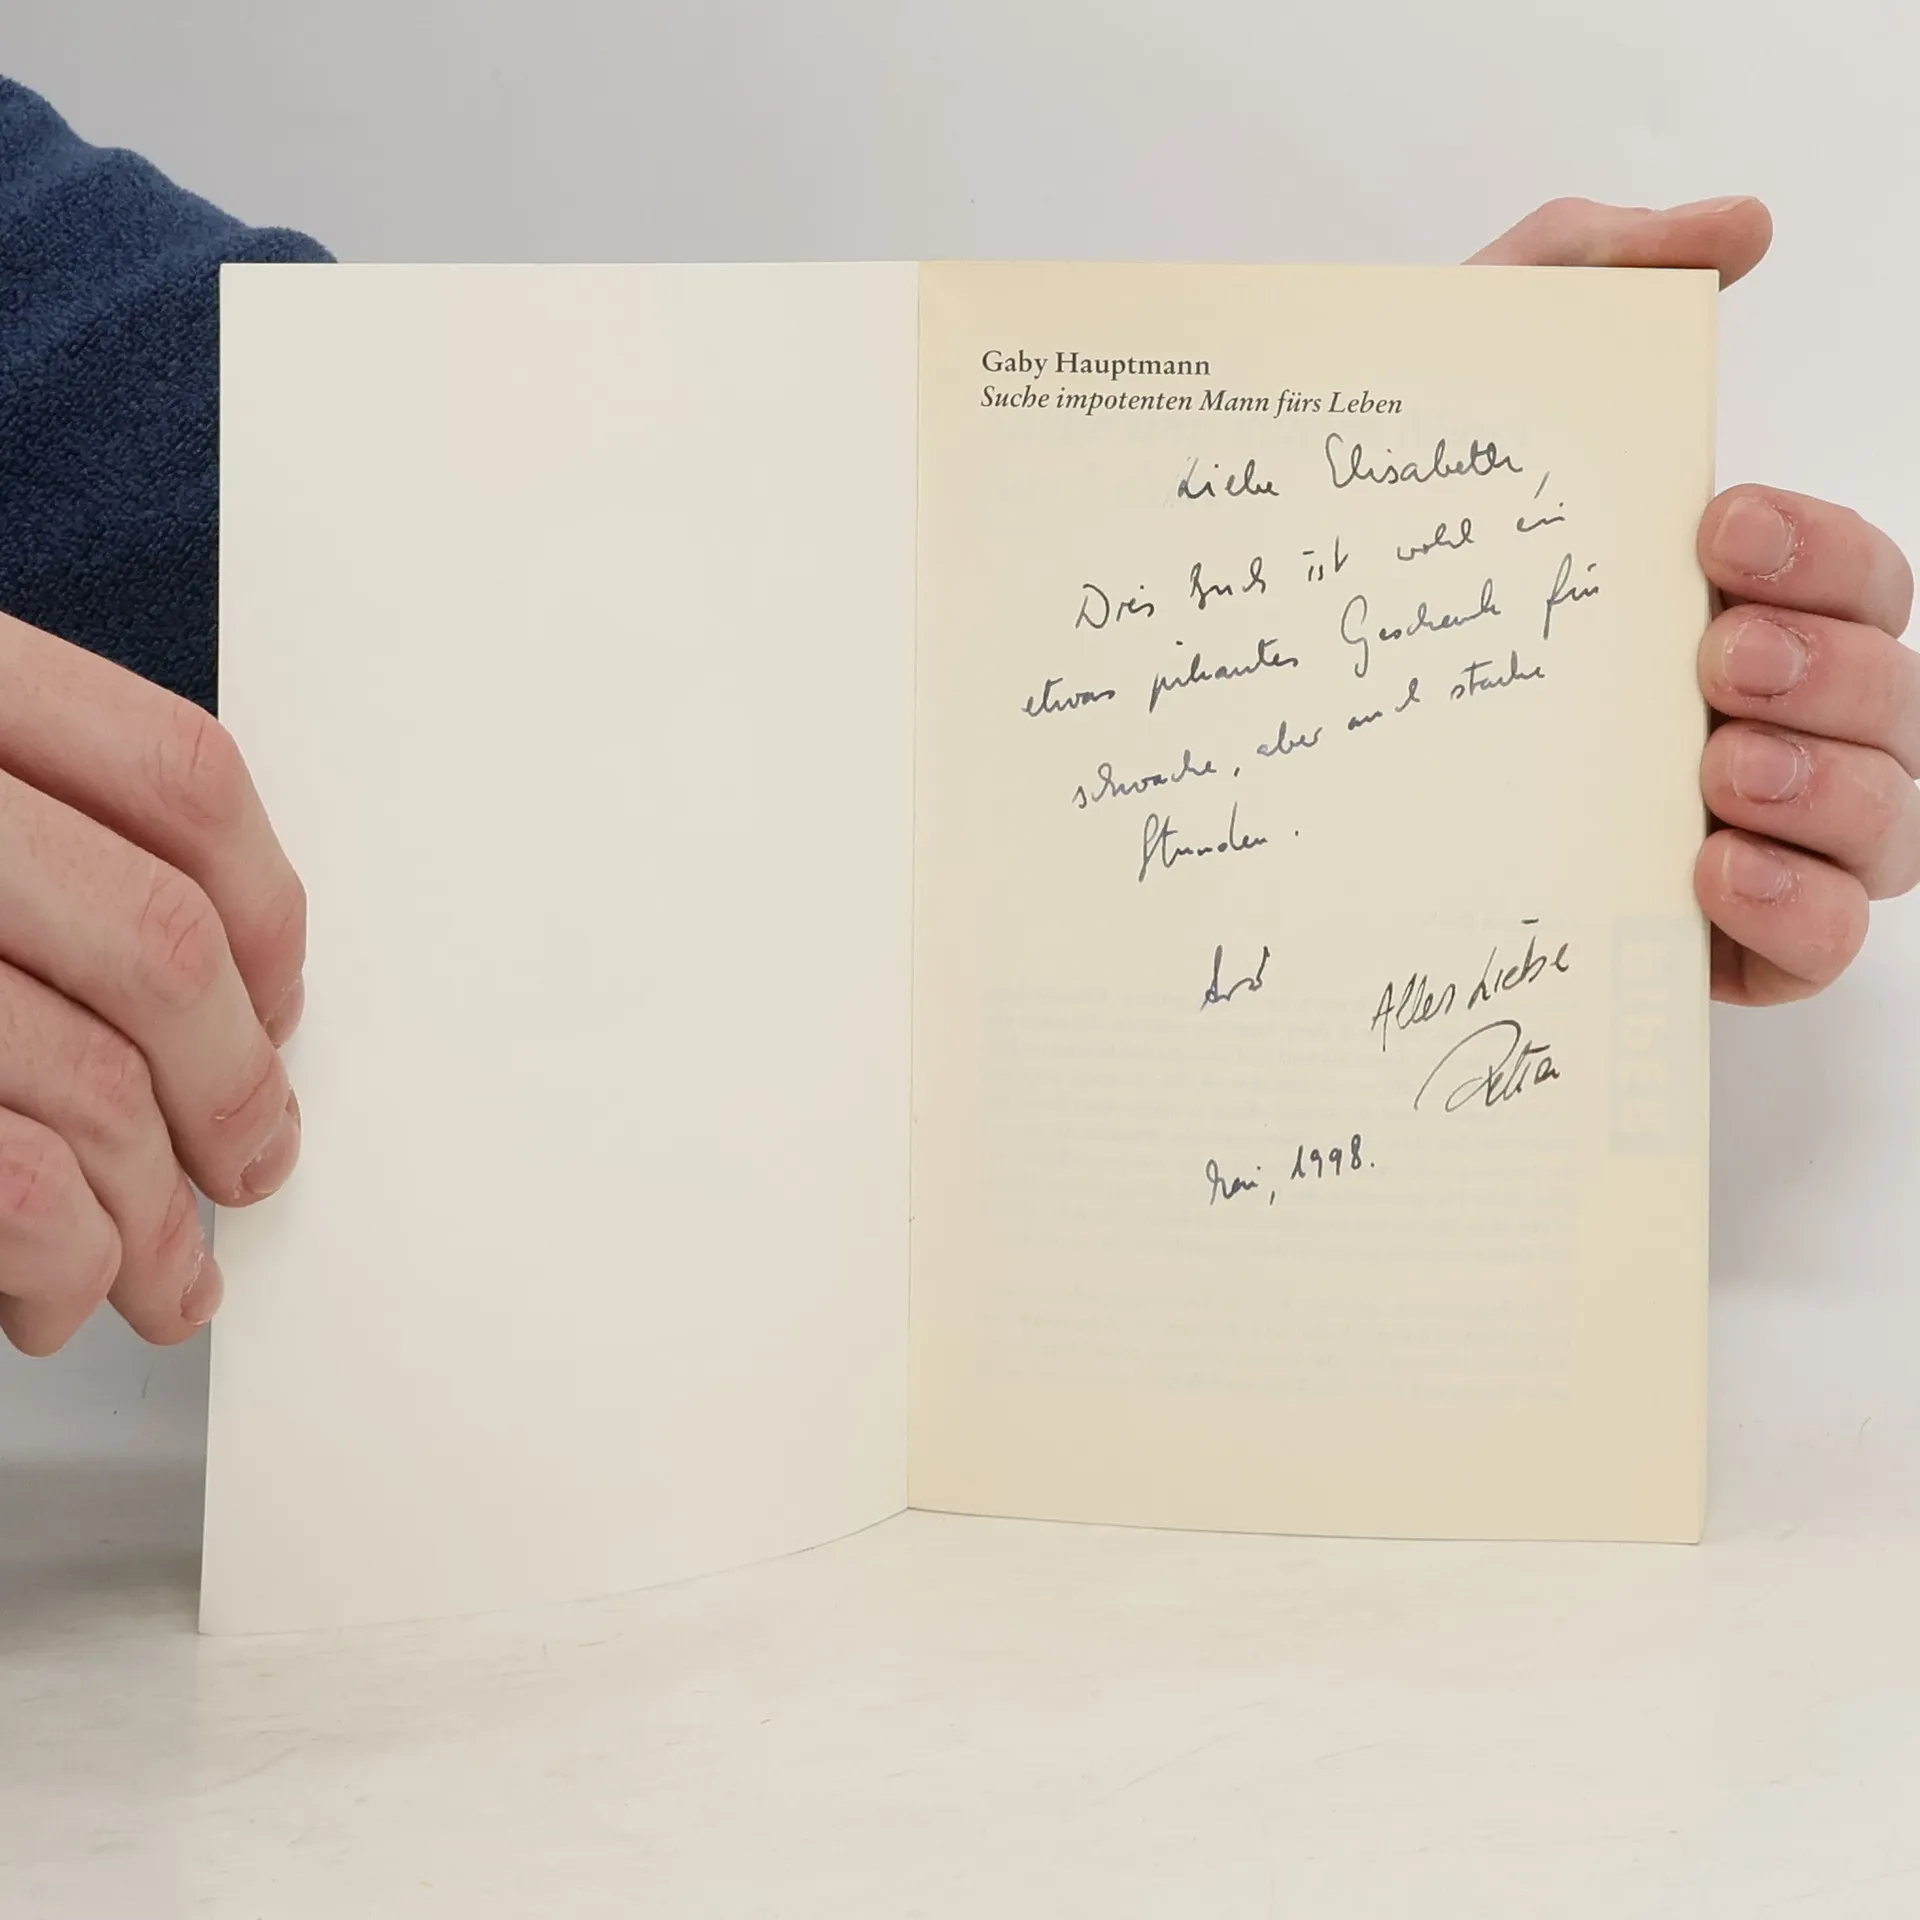 Gaby Hauptmann
Suche impotenten Mann fürs Leben
Liebe Elisabeth,
Dies Buch ist wohl ein
etwas pikantes Geschenk für
schwache, aber auch starke
Stunden.
Alles Liebe
Mai, 1998.